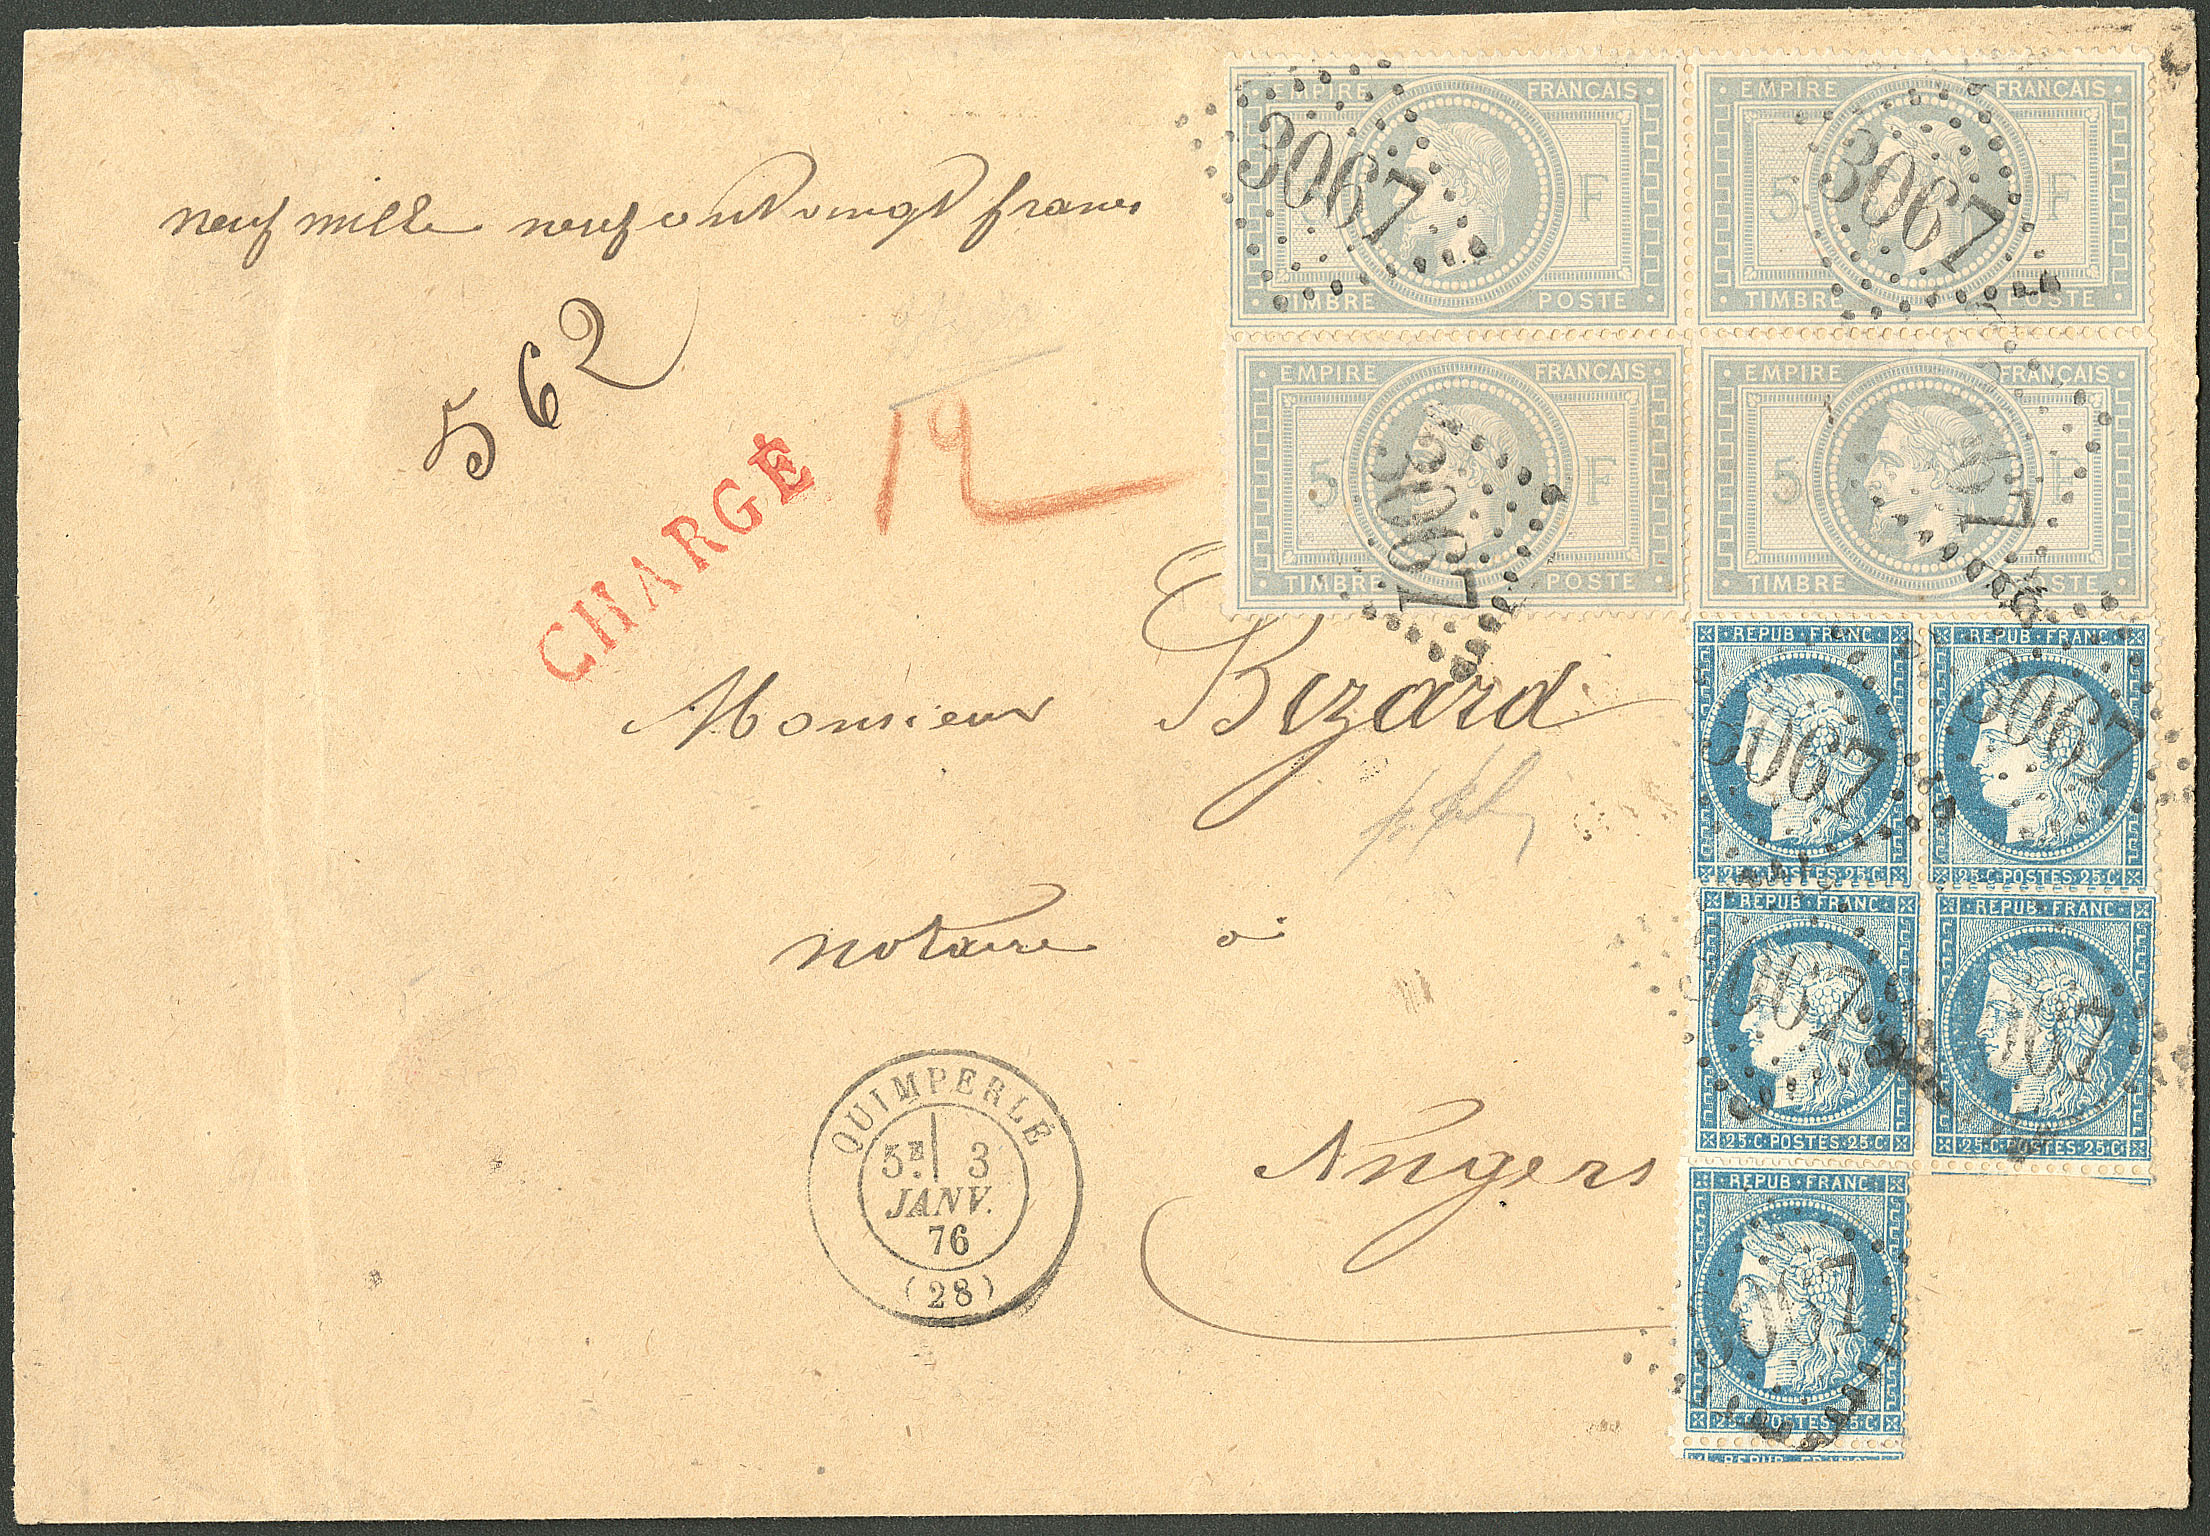 neuf mille neuf cent vingt francs
562
CHARGÉ
19
Monsieur Bizard
notaire à
Angers
QUIMPERLÉ
5E 3
JANV.
76
(28)
EMPIRE FRANÇAIS
3067
F
TIMBRE POSTE
EMPIRE FRANÇAIS
5 F
3067
TIMBRE POSTE
EMPIRE FRANÇAIS
5 F
3067
TIMBRE POSTE
EMPIRE FRANÇAIS
5 F
3067
TIMBRE POSTE
REPUB·FRANC
3067
25·C·POSTES·25·C
REPUB·FRANC
3067
25·C·POSTES·25·C
REPUB·FRANC
3067
25·C·POSTES·25·C
REPUB·FRANC
3067
25·C·POSTES·25·C
REPUB·FRANC
3067
25·C·POSTES·25·C
REPUB FRANC